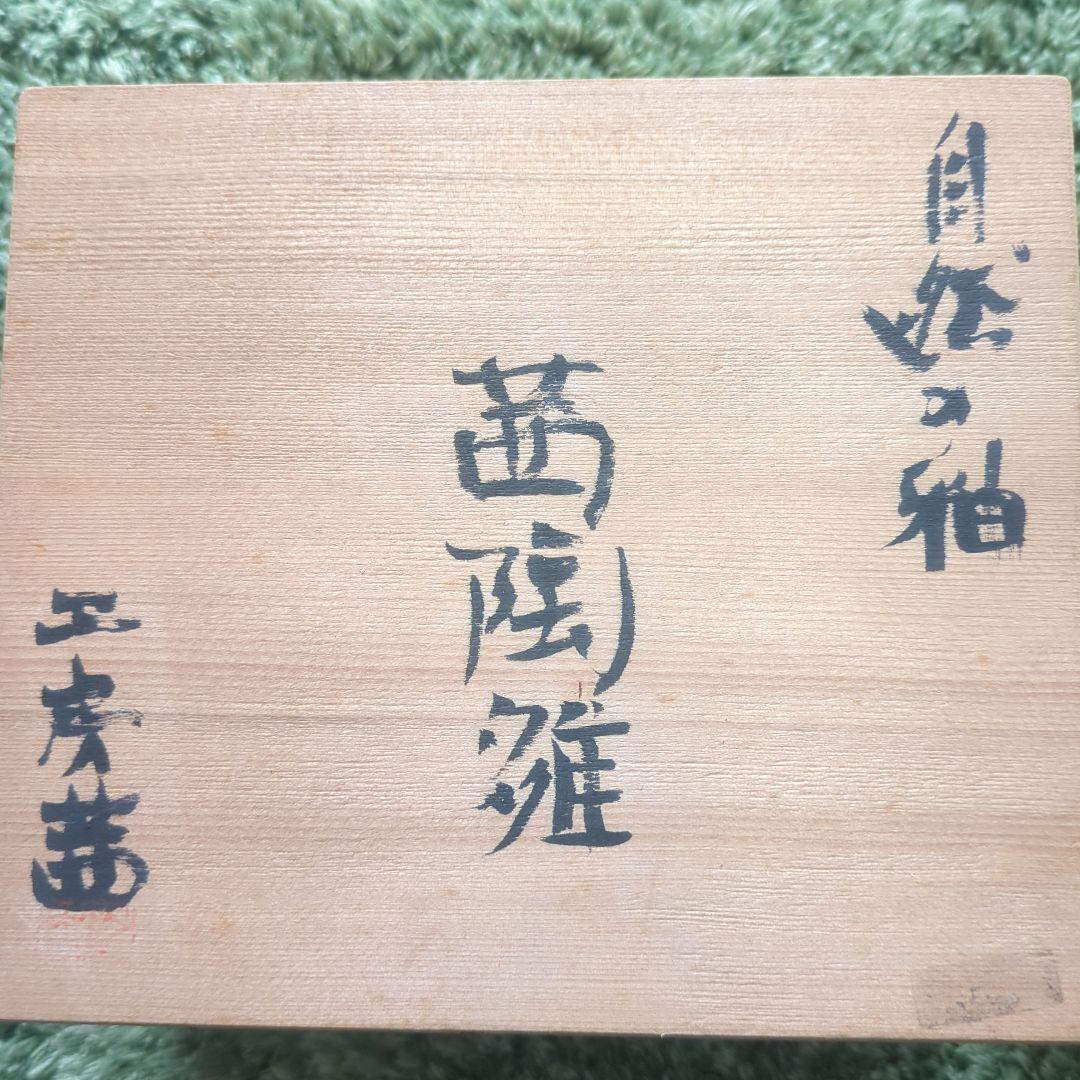 自然の釉
茜陶雛
工房茜